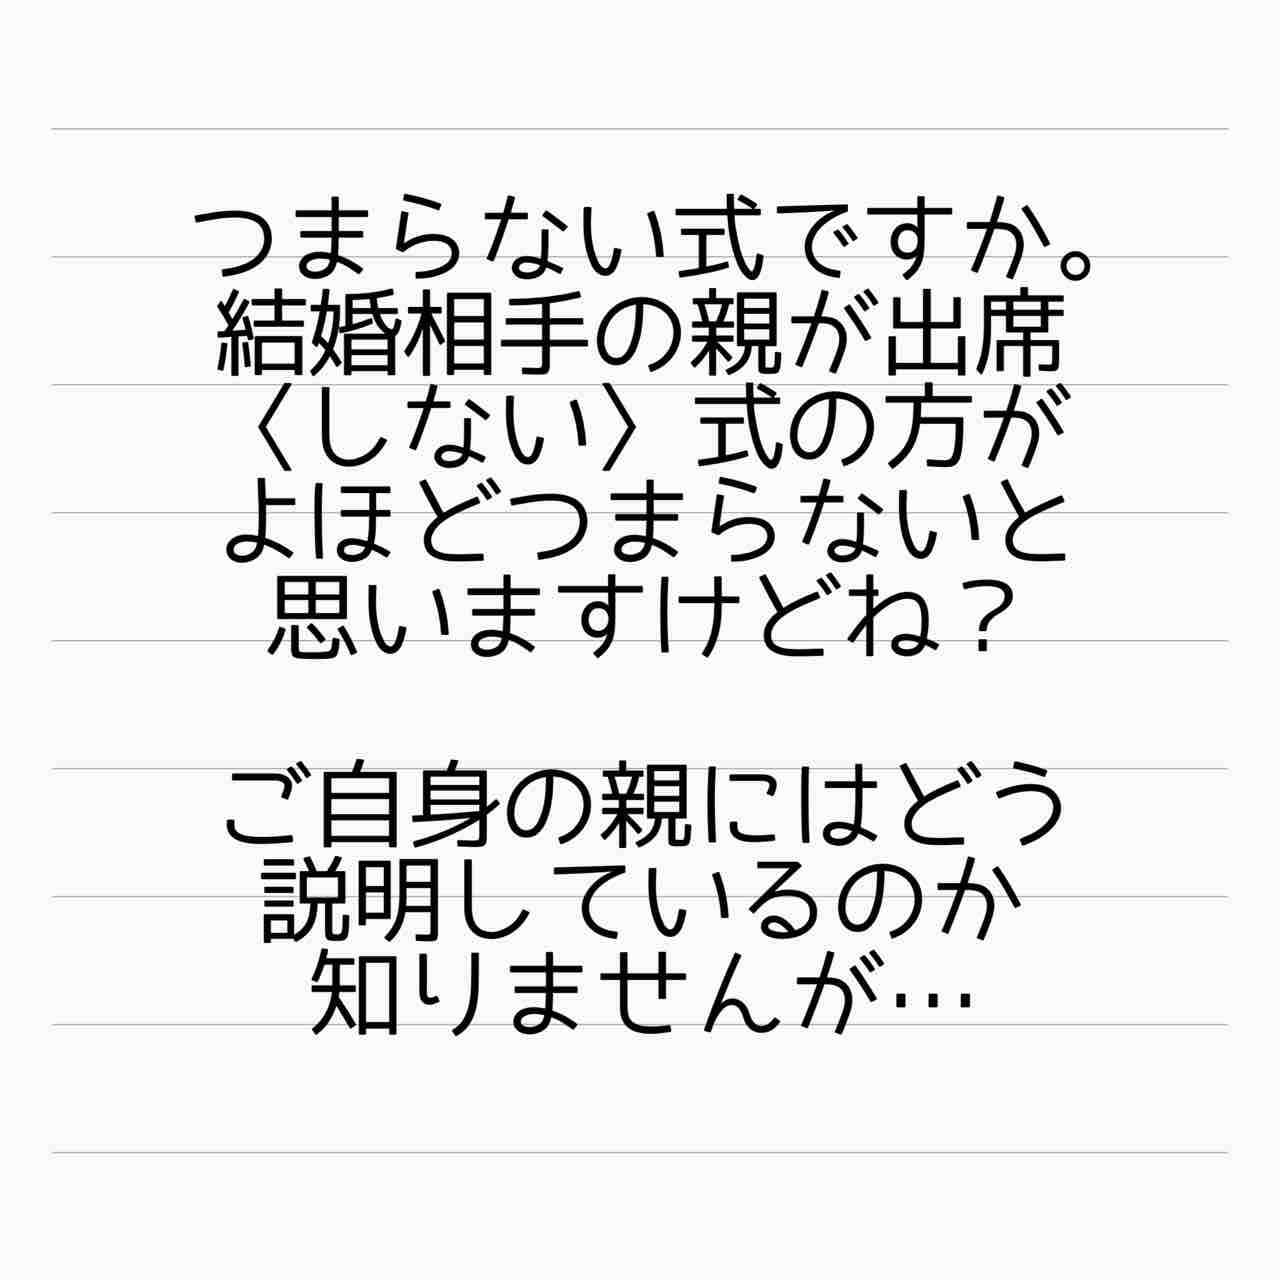 つまらない式ですか。
結婚相手の親が出席
〈しない〉式の方が
よほどつまらないと
思いますけどね？
ご自身の親にはどう
説明しているのか
知りませんが…